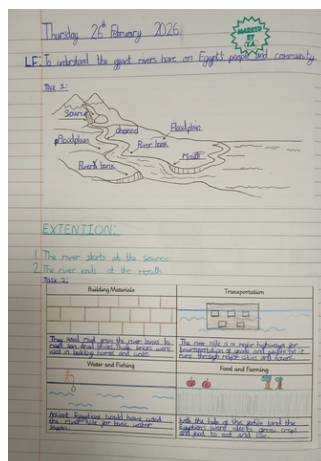 Thursday 26th February 2026
MARKED
BY
T.A
LF: To understand the effect rivers have on Egypt's people and community
Task 1:
Source
channel
Floodplain
Floodplain
River bank
Mouth
River bank
EXTENTION:
1. The river starts at the source
2. The river ends at the mouth
Task 2:
Building Materials
Transportation
They used mud from the river banks to
make sun dried bricks. These bricks were
used in building homes and
The river Nile is a major highways for
transportation of goods and people as it
runs through major cities and
Water and Fishing
Food and Farming
Ancient Egyptians would have used
the river Nile for basic water
With the help of the fertile land the
Egyptians were able to grow crops
and food to eat and